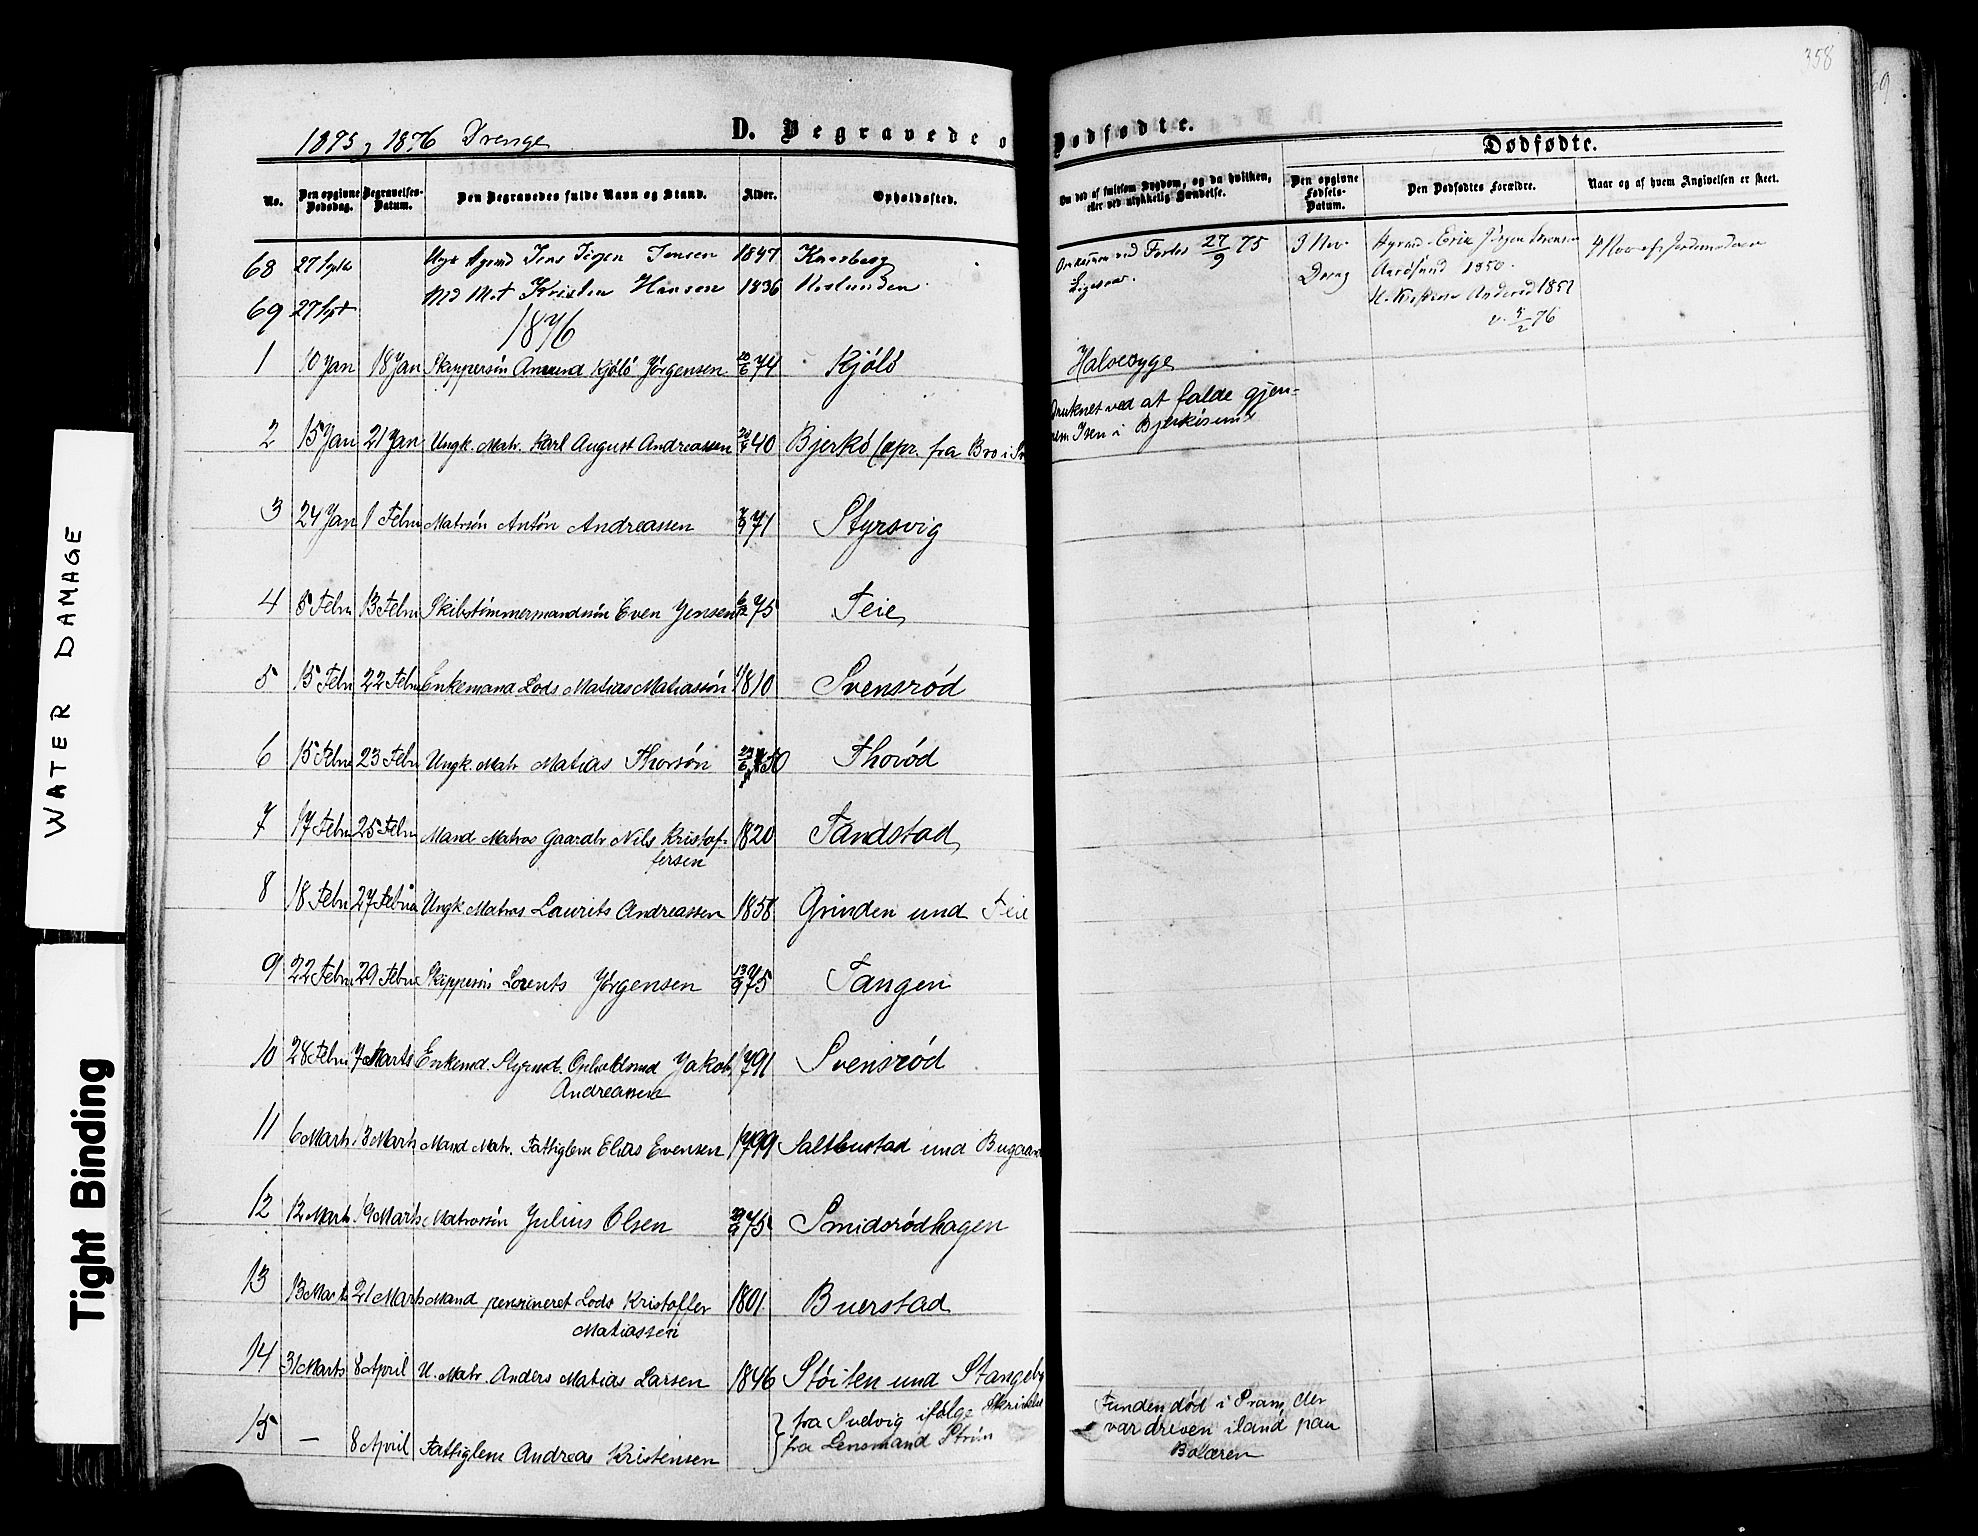 358
69
1875, 1876 Drenge
D. Begravede o
Dødfødte.
Dødfødte.
No.
Den opgivne Dødsdag.
Begravelses-Datum.
Den Begravedes fulde Navn og Stand.
Alder.
Opholdssted.
Om død af smitsom Sygdom, og da hvilken, eller ved ulykkelig Hændelse.
Den opgivne Fødsels-Datum.
Den Dødfødtes Forældre.
Naar og af hvem Angivelsen er skeet.
68 27 Septbr Jens Jensen 1847
27/9 75
Nov.
69 27 Sept Md Mat Kristen Hansen 1836
1851
5/2 76
1876
1 10 Jan 18 Jan Skippersön Amund Kjölö Jörgensen 74 Kjölö
Halsesyge
2 15 Jan 21 Jan Ungk. Matr. Karl August Andreassen 40 Bjerkö (opr. fra Bro i
Druknet ved at falde gjen-
nem Isen i Bjerkösund
3 24 Jan 1 Febru Matrsön Antón Andreassen 71 Styrsvig
4 5 Febru 13 Febru Skibstömmermandsön Even Jensen 75 Teie
5 15 Febru 22 Febru Enkemand Lods Matias Matiassön 1810 Svensröd
6 15 Febru 23 Febru Ungk. Matr Matias Thorsön 50 Thoröd
7 17 Febru 25 Febru Mand Matros Gaardbr Nils Kristof-
fersen 1820 Tandstad
8 18 Febru 27 Februa Ungk Matros Laurits Andreassen 1858 Grinden und Teie
9 22 Febru 29 Februa Skippersön Lorents Jörgensen 75 Tangen
10 28 Febru 7 Marts Enkemd. Styrmd. Jakob
Andreassen 1791 Svensröd
11 6 Marts 13 Marts Mand Matr. Fattiglem Elias Evensen 1799 Salthustad und Bugaar
12 12 Marts 19 Marts Matrossön Julius Olsen 75 Smidsrödhagen
13 13 Marts 21 Marts Mand pensioneret Lods Kristoffer
Matiassen 1801 Buerstad
14 31 Marts 8 April U. Matr. Anders Matias Larsen 1846 Stöiten und Stangeby
15 — 8 April Fattiglem Andreas Kristensen
fra Sudvig ifölge Skrivelse
fra Lensmand Ström
Funden död i Pram, der
var dreven iland paa
Bolæren
WATER DAMAGE
Tight Binding